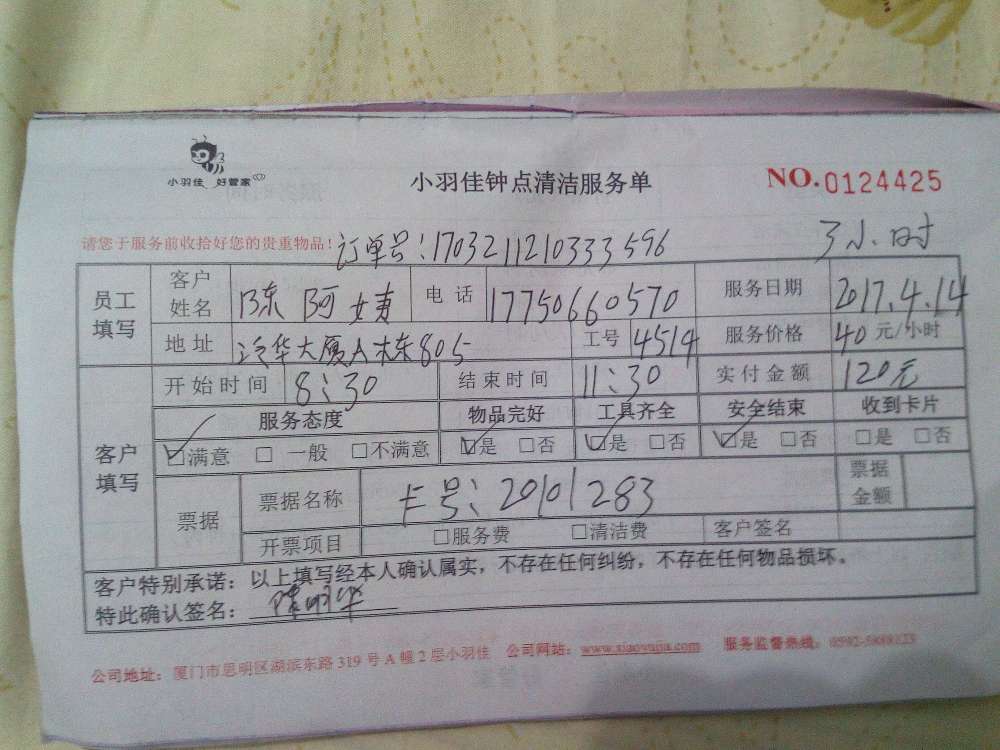 小羽佳 好管家
小羽佳钟点清洁服务单
NO.0124425
请您于服务前收拾好您的贵重物品!
订单号:170321121033 3596
3小时
员工填写 客户姓名 陈阿 电话 17750660570 服务日期 2017.4.14
地址 华大厦A栋805 工号 4514 服务价格 40元/小时
客户填写 开始时间 8:30 结束时间 11:30 实付金额 120元
服务态度 物品完好 工具齐全 安全结束 收到卡片
☑满意 □一般 □不满意 ☑是 □否 ☑是 □否 ☑是 □否 □是 □否
票据 票据名称 卡号:20101283 票据金额
开票项目 □服务费 □清洁费 客户签名
客户特别承诺:以上填写经本人确认属实,不存在任何纠纷,不存在任何物品损坏。
特此确认签名:陈明华
公司地址:厦门市思明区湖滨东路319号A幢2层小羽佳 公司网站:www.xiaoyujia.com 服务监督热线: